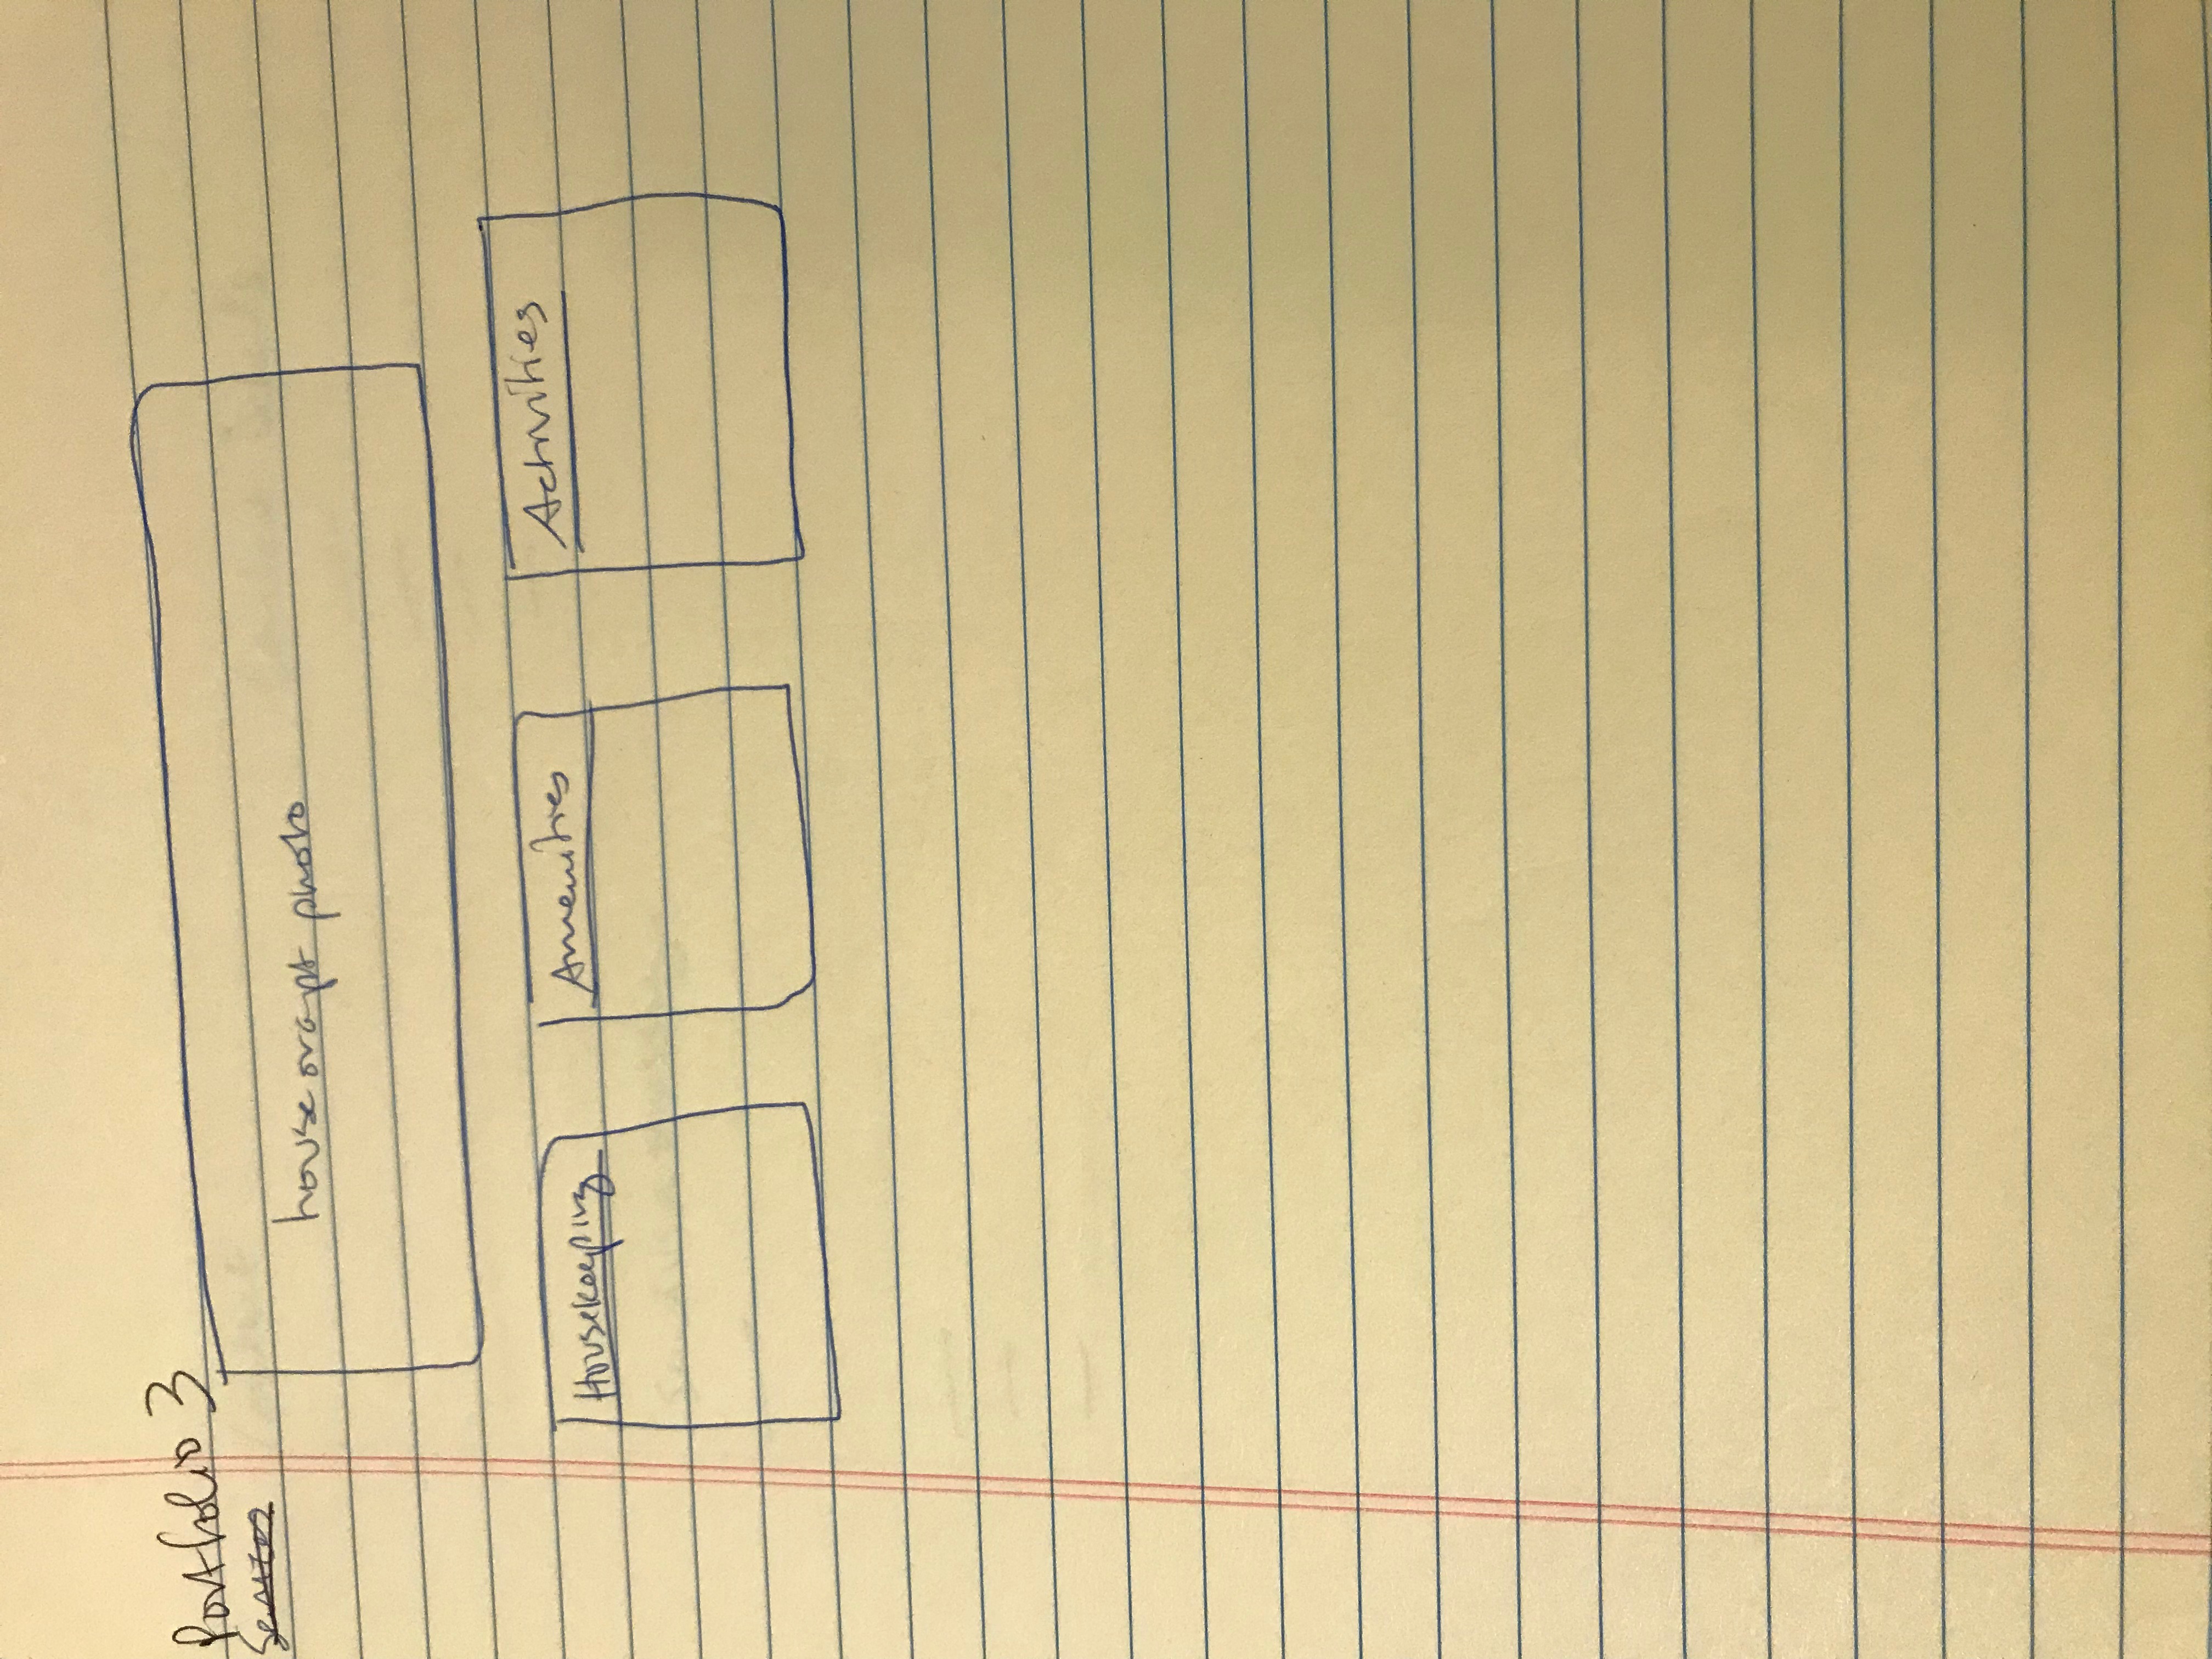 Portfolio 3
Services
house or apt photo
Housekeeping
Amenities
Activities